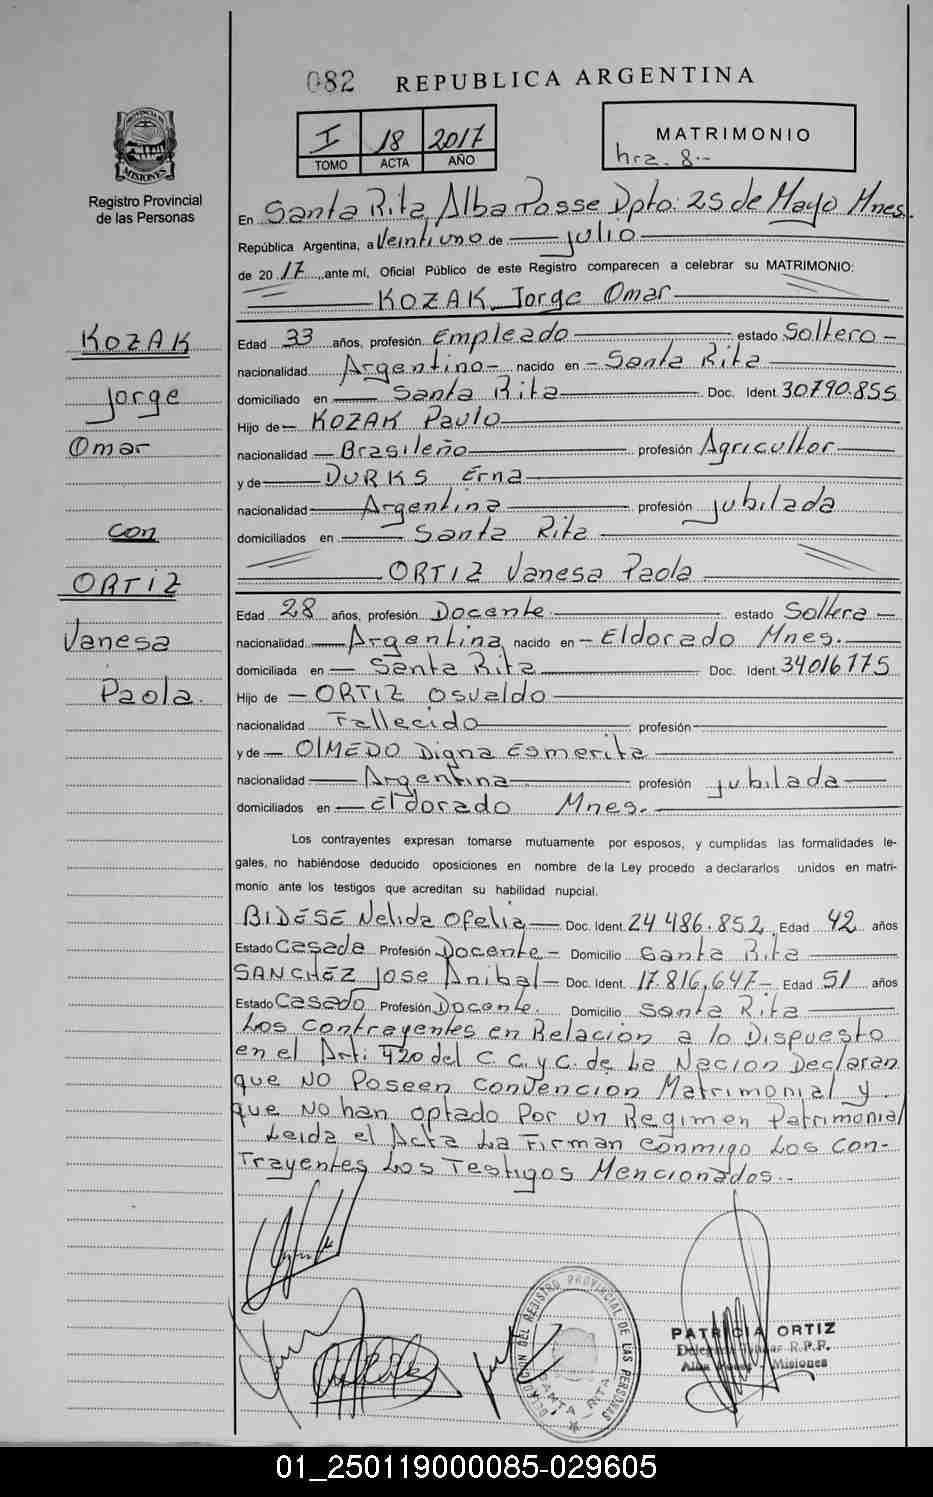 082 REPUBLICA ARGENTINA
PROVINCIA DE MISIONES
Registro Provincial
de las Personas
I 18 2017
TOMO ACTA AÑO
MATRIMONIO
hrz. 8.--
En Santa Rita, Alba Posse Dpto: 25 de Mayo Mnes.
República Argentina, a Veintiuno de julio
de 20 17 ,,ante mí, Oficial Público de este Registro comparecen a celebrar su MATRIMONIO:
KOZAK Jorge Omar
KOZAK
Jorge
Omar
con
ORTIZ
Vanesa
Paola.
Edad 33 años, profesión Empleado estado Soltero -
nacionalidad Argentino- nacido en - Santa Rita
domiciliado en Santa Rita Doc. Ident 30790.855
Hijo de - KOZAK Paulo
nacionalidad - Brasileño profesión Agricultor
y de DURKS Erna
nacionalidad Argentina profesión jubilada
domiciliados en Santa Rita
ORTIZ Vanesa Paola
Edad 28 años, profesión Docente estado Soltera -
nacionalidad Argentina nacido en - Eldorado Mnes.
domiciliada en - Santa Rita Doc. Ident 34016775
Hijo de - ORTIZ Osvaldo
nacionalidad Fallecido profesión
y de - OLMEDO Digna Esmerita
nacionalidad Argentina profesión jubilada
domiciliados en Eldorado Mnes.
Los contrayentes expresan tomarse mutuamente por esposos, y cumplidas las formalidades le-
gales, no habiéndose deducido oposiciones en nombre de la Ley procedo a declararlos unidos en matri-
monio ante los testigos que acreditan su habilidad nupcial.
BIDESE Nelida Ofelia - Doc. Ident. 24 486.852 Edad 42 años
Estado Casada Profesión Docente - Domicilio Santa Rita
SANCHEZ Jose Anibal - Doc. Ident. 17.816,647- Edad 51 años
Estado Casado Profesión Docente. Domicilio Santa Rita
Los Contrayentes en Relacion a lo Dispuesto
en el Arti 420 del C C. y C. de La Nacion Declaran
que NO Poseen Convencion Matrimonial y
que No han optado Por un Regimen Patrimonial
Leida el Acta La Firman conmigo Los Con-
Trayentes Los Testigos Mencionados..
DELEGACION DEL REGISTRO PROVINCIAL DE LAS PERSONAS
SANTA RITA
PATRICIA ORTIZ
R.P.P.
Alba Posse Misiones
01_250119000085-029605